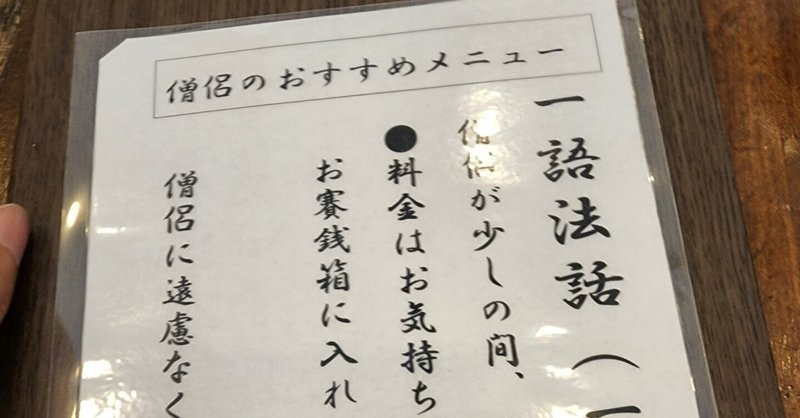 僧侶のおすすめメニュー
一語法話（一
僧侶が少しの間、
●料金はお気持ち
お賽銭箱に入れ
僧侶に遠慮なく